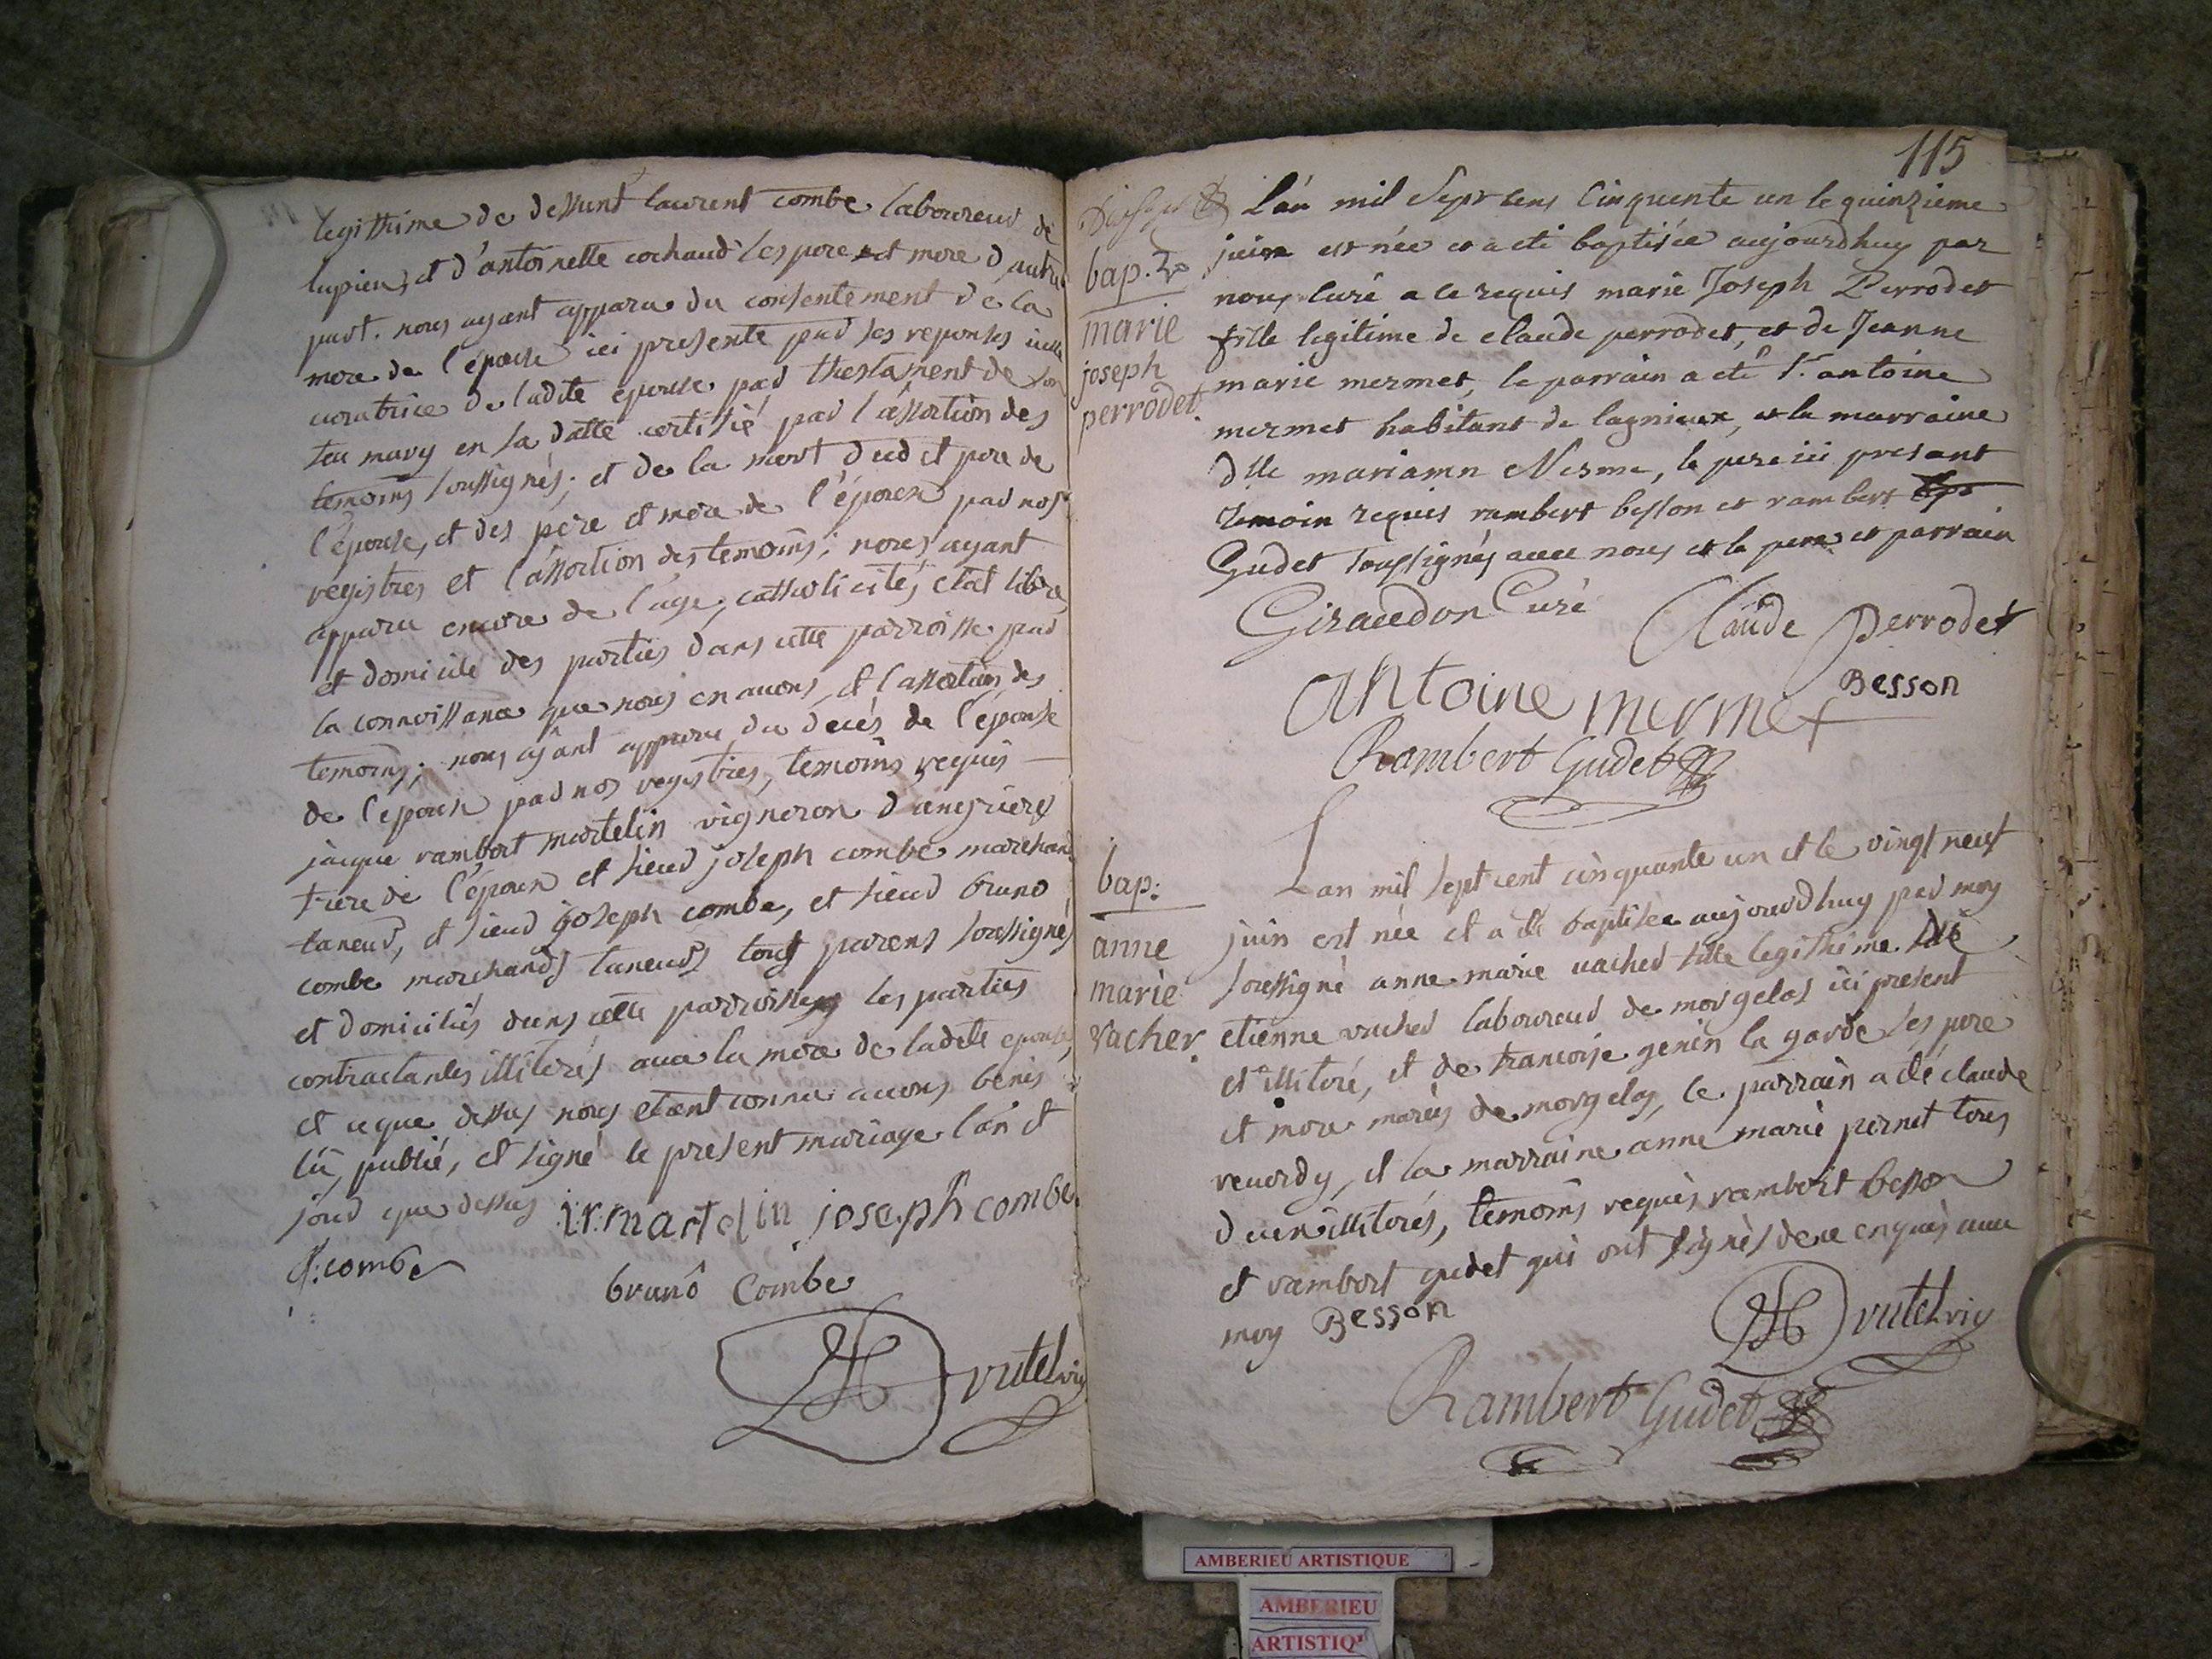 legithime de deffunt laurent combe laboureur de
lupieu, et d'antoinette cochaud ses pere et mere d'autre
part. nous ayant apparu du consentement de la
mere de l'épouse ici presente par ses reponses icelle
curatrice de ladite épouse par thestament de son
feu mary en sa datte certifié par l'assertion des
temoins soussignés; et de la mort dud et pere de
l'épouse, et des père et mere de l'époux par nos
registres et l'assertion des temoins; nous ayant
apparu encore de l'age, catholicités, etat libre
et domicile des parties dans cette parroisse par
la connoissance que nous en avons, et l'assertion des
temoins; nous ayant apparu du decés de l'épouse
de l'époux par nos registres, temoins requis
jacque rambert martelin vigneron d'angrieres
frere de l'époux et sieur joseph combe marchand
taneur, et sieur joseph combe, et sieur bruno
combe marchands taneurs tous parens soussignés
et domiciliés dans cette parroisse les parties
contractantes illiterés avec la mere de ladite epouse,
et ce que dessus nous etant connu avons benis
lü, publié, et signé le présent mariage l'an et
jour que dessus i.r. martelin joseph combe
J: combe
brunô Combe
vutelviy
115
L'an mil Sept cens Cinquente un le quinzieme
bap.
juin est née et a eté baptisée aujourdhuy par
nous curé a ce requis marie Joseph Perrodet
marie
joseph
perrodet.
fille legitime de claude perrodet, et de Jeanne
marie mermet, le parrain a eté Sr. antoine
mermet habitant de lagnieux, et la marraine
dlle mariamn Nesme, le pere ici present
temoin requis rambert besson et rambert
Gudet soussignés avec nous et le pere et parrain
Giraudon Curé Claude Perrodet
antoine mermet Besson
Rambert Gudet
bap:
anne
marie
vacher.
Lan mil sept cent cinquante un et le vingt neuf
juin est née et a été baptisée aujourdhuy par moy
soussigné anne marie vacher fille legithime de
etienne vacher laboureur de morgelas ici present
et illiteré, et de francoise genin la garde ses pere
et mere mariés de morgelas, le parrain a été claude
reverdy, et la marraine anne marie pernet tous
deux illiterés, temoins requis rambert besson
et rambert gudet qui ont signés de ce enquis avec
moy Besson vutelviy
Rambert Gudet
AMBERIEU ARTISTIQUE
AMBERIEU
ARTISTIQ